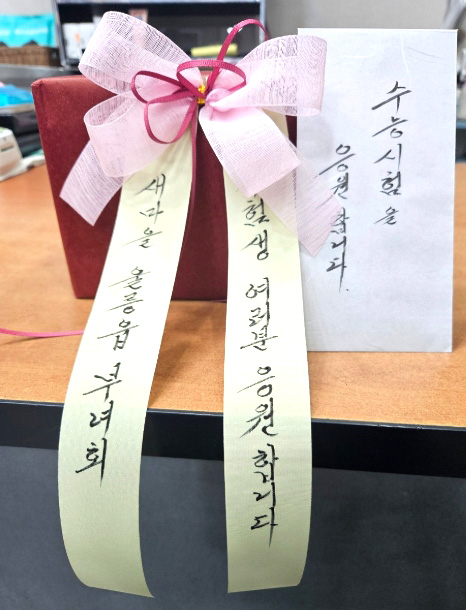 수능시험을
응원합니다.
험생 여러분 응원합니다
새마을 울릉읍 부녀회